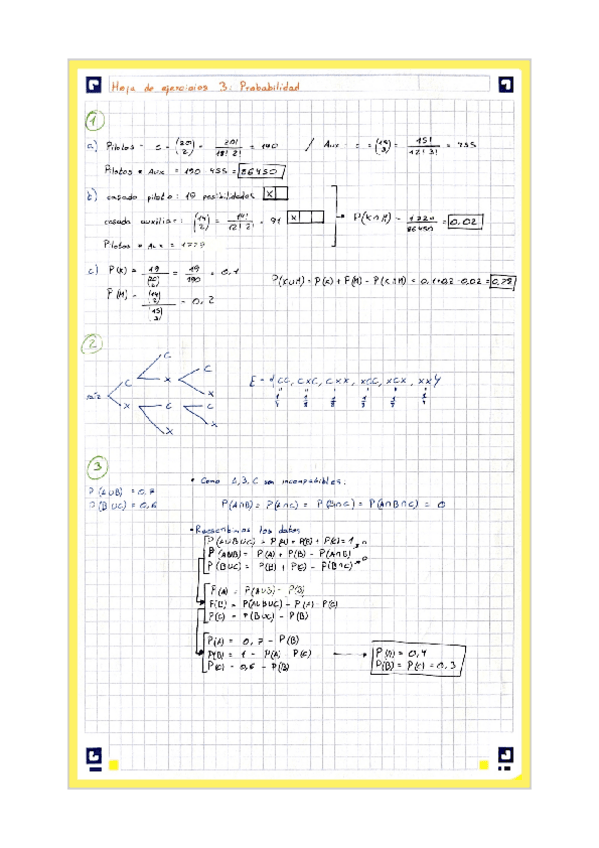 Hoja de ejercicios 3: Probabilidad
1
a) Pilotos = C = (20 2) = 20! / 18! 2! = 190 / Aux = C = (15 3) = 15! / 12! 3! = 455
Pilotos * Aux = 190 · 455 = 86450
b) casado piloto: 19 posibilidades X
casada auxiliar: (14 2) = 14! / 12! 2! = 91 X
P(K∩M) = 1729 / 86450 = 0,02
Pilotos * Aux = 1729
c) P(K) = 19 / (20 2) = 19 / 190 = 0,1
P(M) = (14 2) / (15 3) = 0,2
P(K∪M) = P(K) + P(M) - P(K∩M) = 0,1+0,2-0,02 = 0,28
2
C
C X C
X
raíz
X C C
X X
E = {CC, CXC, CXX, XCC, XCX, XX}
1/4 1/8 1/8 1/8 1/8 1/4
3
P(A∪B) = 0,7
P(B∪C) = 0,6
• Como A,B,C son incompatibles:
P(A∩B) = P(A∩C) = P(B∩C) = P(A∩B∩C) = 0
• Reescribimos los datos
P(A∪B∪C) = P(A) + P(B) + P(C) = 1
P(A∪B) = P(A) + P(B) - P(A∩B) 0
P(B∪C) = P(B) + P(C) - P(B∩C) 0
P(A) = P(A∪B) - P(B)
P(B) = P(A∪B∪C) - P(A) - P(C)
P(C) = P(B∪C) - P(B)
P(A) = 0,7 - P(B)
P(B) = 1 - P(A) - P(C)
P(C) = 0,6 - P(B)
P(A) = 0,4
P(B) = P(C) = 0,3